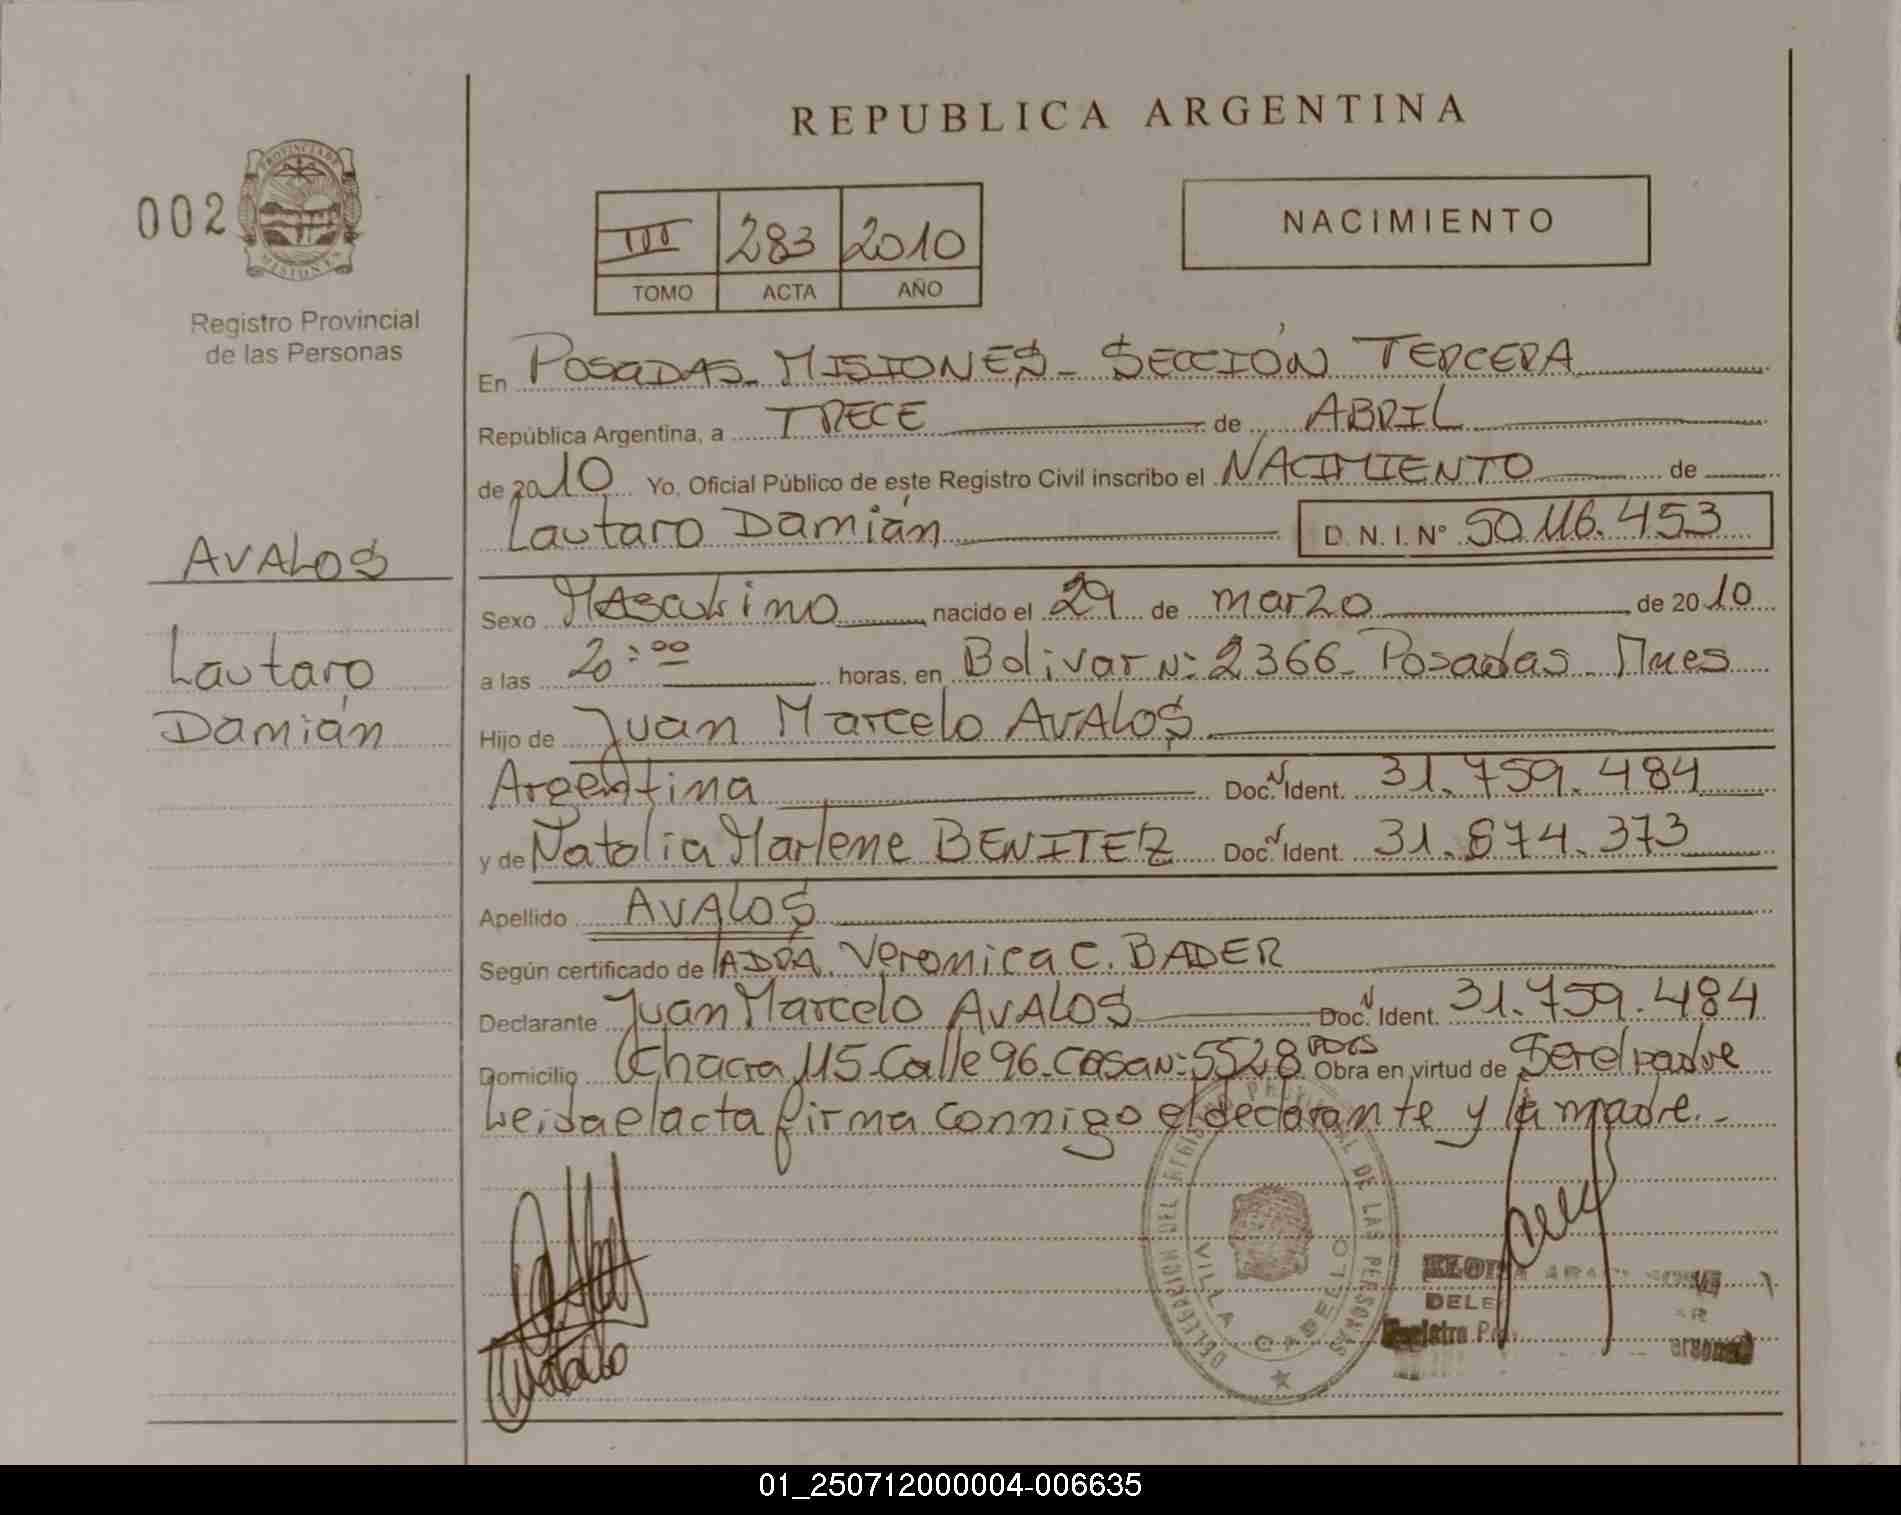 REPUBLICA ARGENTINA
002
PROVINCIA DE
MISIONES
Registro Provincial
de las Personas
III 283 2010
TOMO ACTA AÑO
NACIMIENTO
En POSADAS - MISIONES - SECCIÓN TERCERA
República Argentina, a TRECE de ABRIL
de 2010 Yo, Oficial Público de este Registro Civil inscribo el NACIMIENTO de
Lautaro Damián D. N. I. Nº 50.116.453
AVALOS
Lautaro
Damián
Sexo Masculino nacido el 29 de marzo de 2010
a las 20:00 horas, en Bolivar Nº 2366 - Posadas - Mnes
Hijo de Juan Marcelo AVALOS
Argentina Doc. N Ident. 31.759.484
y de Natalia Marlene BENITEZ Doc. N Ident. 31.874.373
Apellido AVALOS
Según certificado de Veronica C. BADER
Declarante Juan Marcelo AVALOS Doc. N Ident. 31.759.484
Domicilio Chacra 115 - Calle 96 - Casa Nº 5528 PDAS Obra en virtud de Ser el padre
Leida el acta firma conmigo el declarante y la madre.-
DELEGACION DEL REGISTRO PROVINCIAL DE LAS PERSONAS
VILLA CABELLO
01_250712000004-006635